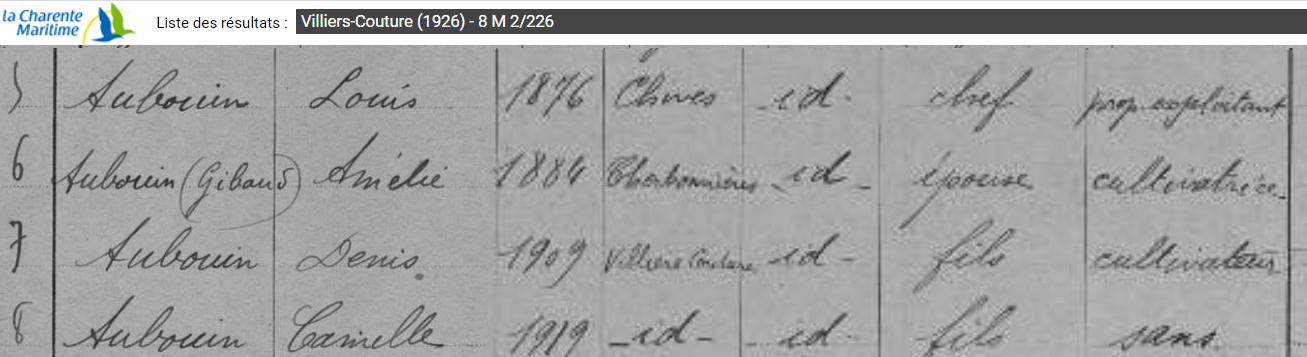 la Charente Maritime Liste des résultats : Villiers-Couture (1926) - 8 M 2/226
5 Aubouin Louis 1876 Chives id. chef prop. exploitant
6 Aubouin (Gibaud) Amélie 1884 id épouse cultivatrice
7 Aubouin Denis 1909 Villiers Couture id fils cultivateur
8 Aubouin Camille 1919 id id. fils sans